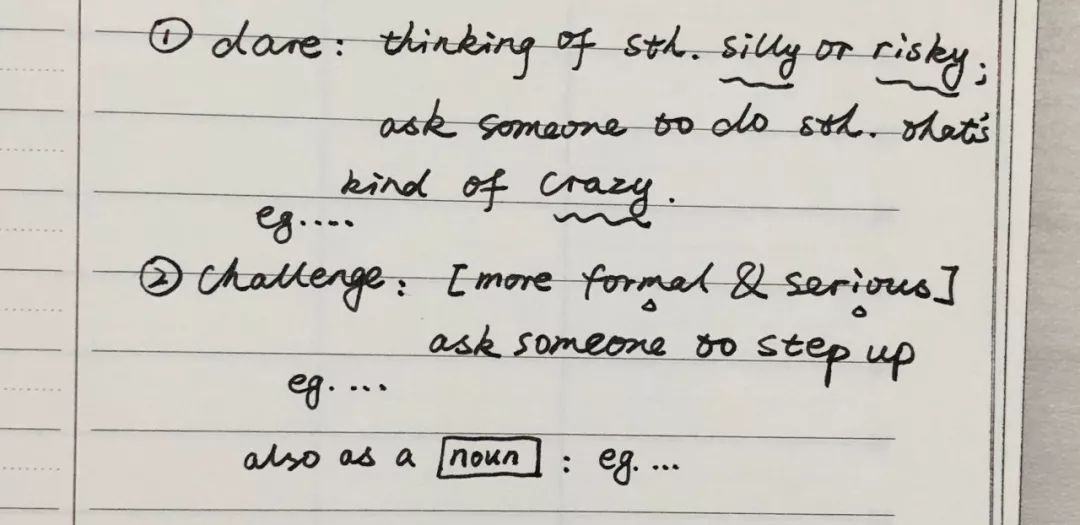 ① dare: thinking of sth. silly or risky;
ask someone to do sth. that's
kind of crazy.
eg....
② challenge: [more formal & serious]
ask someone to step up
eg. ...
also as a noun: eg. ...